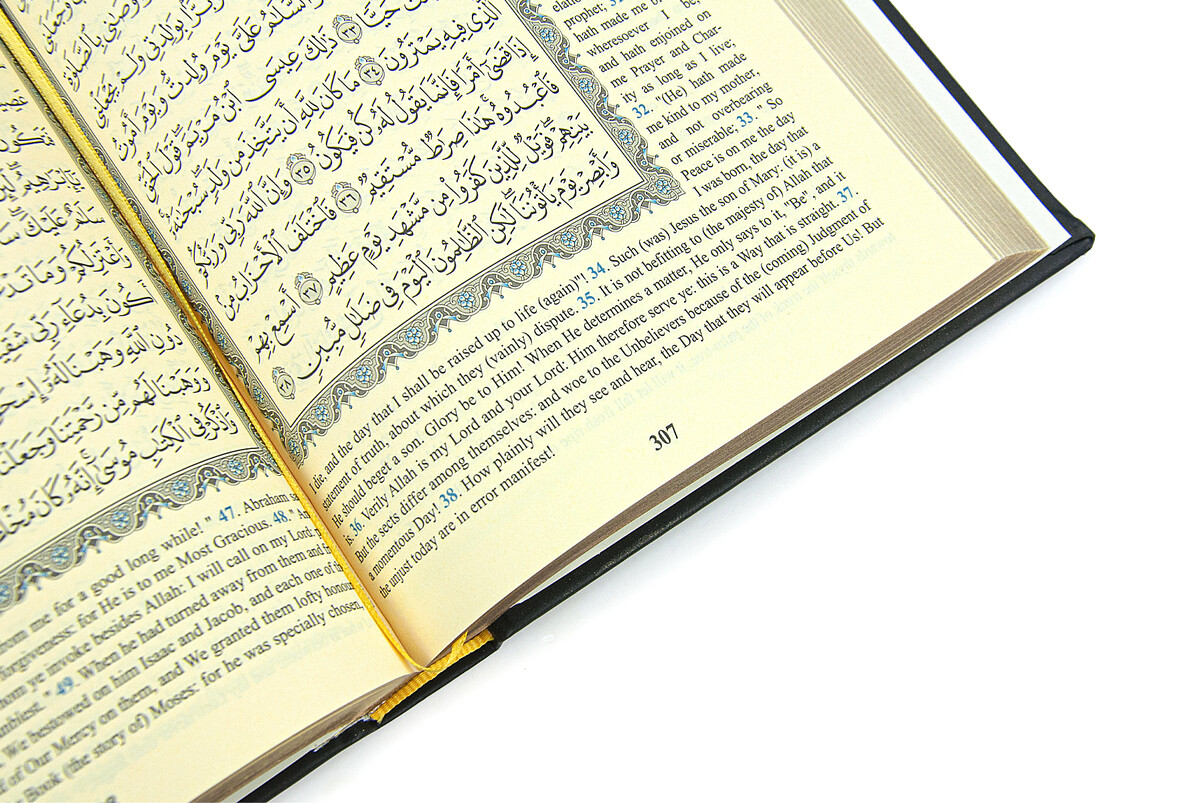 وَأَوْصَٰنِى بِٱلصَّلَوٰةِ
وَبَرًّۢا بِوَٰلِدَتِى وَلَمْ يَجْعَلْنِى
وَٱلسَّلَٰمُ عَلَىَّ يَوْمَ وُلِدتُّ وَيَوْمَ أَمُوتُ
حَيًّا ٣٣ ذَٰلِكَ عِيسَى ٱبْنُ مَرْيَمَ قَوْلَ ٱلْحَقِّ
ٱلَّذِى فِيهِ يَمْتَرُونَ ٣٤ مَا كَانَ لِلَّهِ أَن يَتَّخِذَ مِن وَلَدٍ سُبْحَٰنَهُۥٓ
إِذَا قَضَىٰٓ أَمْرًا فَإِنَّمَا يَقُولُ لَهُۥ كُن فَيَكُونُ ٣٥ وَإِنَّ ٱللَّهَ رَبِّى وَرَبُّكُمْ
فَٱعْبُدُوهُ هَٰذَا صِرَٰطٌ مُّسْتَقِيمٌ ٣٦ فَٱخْتَلَفَ ٱلْأَحْزَابُ مِنۢ
بَيْنِهِمْ فَوَيْلٌ لِّلَّذِينَ كَفَرُوا۟ مِن مَّشْهَدِ يَوْمٍ عَظِيمٍ ٣٧ أَسْمِعْ بِهِمْ
وَأَبْصِرْ يَوْمَ يَأْتُونَنَا لَٰكِنِ ٱلظَّٰلِمُونَ ٱلْيَوْمَ فِى ضَلَٰلٍ مُّبِينٍ ٣٨
prophet;
hath made me
wheresoever I be,
and hath enjoined on
me Prayer and Char-
ity as long as I live;
32. "(He) hath made
me kind to my mother,
and not overbearing
or miserable; 33." So
Peace is on me the day
I was born, the day that
I die, and the day that I shall be raised up to life (again)"! 34. Such (was) Jesus the son of Mary: (it is) a
statement of truth, about which they (vainly) dispute. 35. It is not befitting to (the majesty of) Allah that
He should beget a son. Glory be to Him! When He determines a matter, He only says to it, "Be", and it
is. 36. Verily Allah is my Lord and your Lord: Him therefore serve ye: this is a Way that is straight. 37.
But the sects differ among themselves: and woe to the Unbelievers because of the (coming) Judgment of
a momentous Day! 38. How plainly will they see and hear, the Day that they will appear before Us! But
the unjust today are in error manifest!
307
سَلَٰمٌ عَلَيْكَ
وَأَعْتَزِلُكُمْ وَمَا
بِدُعَآءِ رَبِّى
دُونِ ٱللَّهِ وَهَبْنَا لَهُۥٓ
وَوَهَبْنَا لَهُم مِّن رَّحْمَتِنَا وَجَعَلْنَا
وَٱذْكُرْ فِى ٱلْكِتَٰبِ مُوسَىٰٓ إِنَّهُۥ كَانَ
from me for a good long while! " 47. Abraham
forgiveness: for He is to me Most Gracious. 48."
ye invoke besides Allah: I will call on my Lord:
" 49. When he had turned away from them and
We bestowed on him Isaac and Jacob, and each one of
of Our Mercy on them, and We granted them lofty
Book (the story of) Moses: for he was specially chosen,